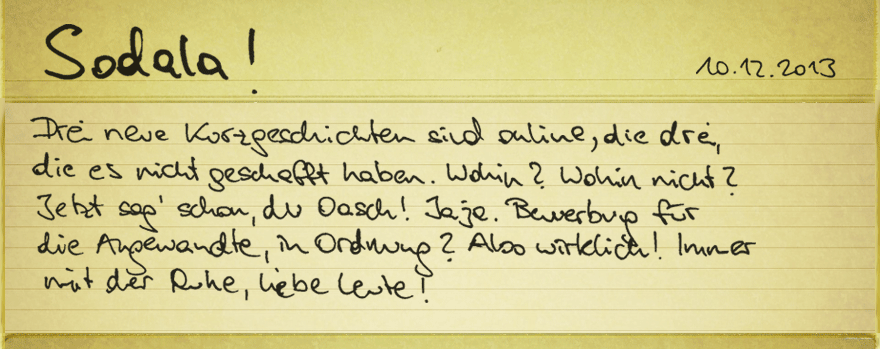 Sodala!
10.12.2013
Drei neue Kurzgeschichten sind online, die drei,
die es nicht geschafft haben. Wohin? Wohin nicht?
Jetzt sag' schon, du Oasch! Jaja. Bewerbung für
die Angewandte, in Ordnung? Also wirklich! Immer
mit der Ruhe, liebe Leute!